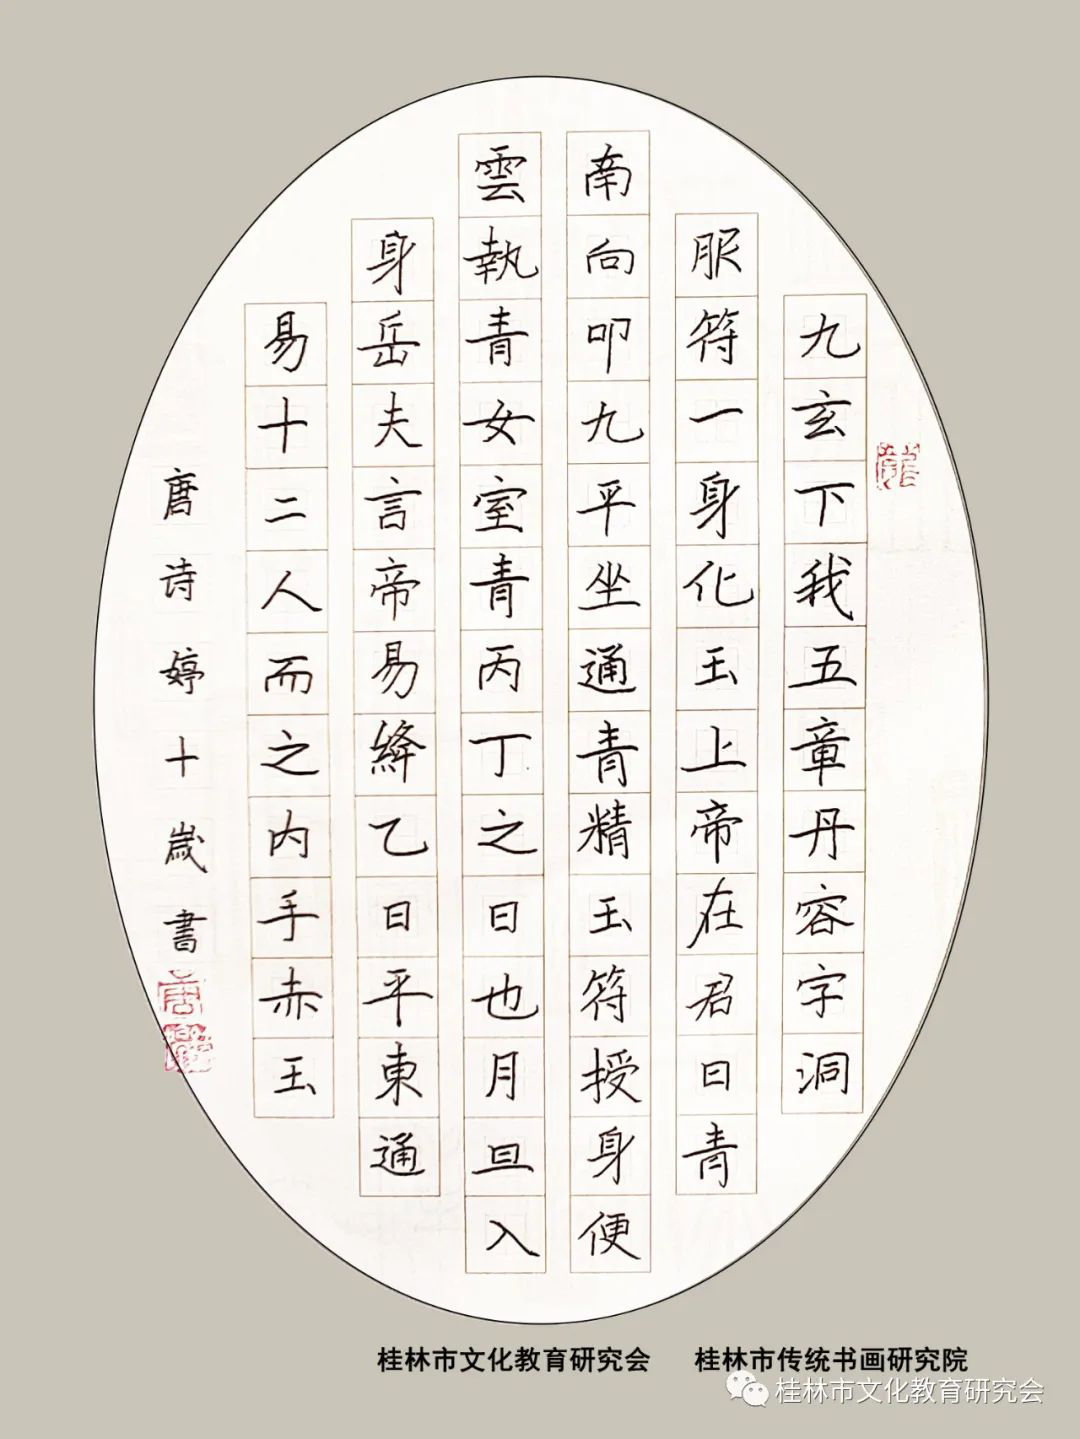 九玄下我五章丹容字洞
服符一身化玉上帝在君日青
南向叩九平坐通青精玉符授身便
雲執青女室青丙丁之日也月旦入
身岳夫言帝易絳乙日平東通
易十二人而之内手赤玉
唐诗婷十歲書
桂林市文化教育研究会 桂林市传统书画研究院
桂林市文化教育研究会